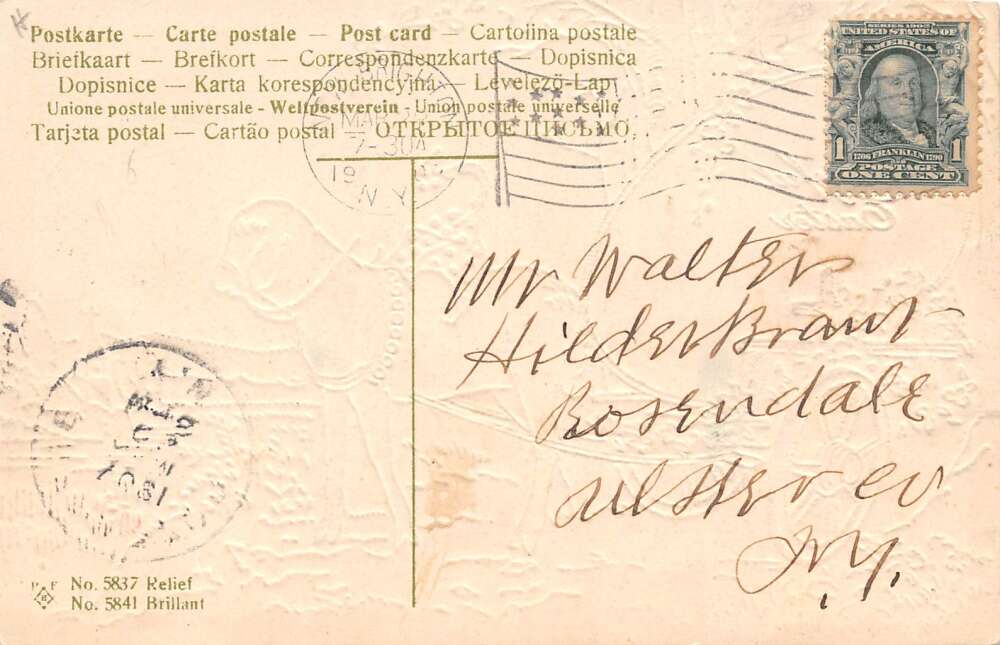 Postkarte — Carte postale — Post card — Cartolina postale
Briefkaart — Brefkort — Correspondenzkarte — Dopisnica
Dopisnice — Karta korespondencyjna — Levelező-Lap
Unione postale universale - Weltpostverein - Union postale universelle
Tarjeta postal — Cartão postal — ОТКРЫТОЕ ПИСЬМО.
SERIES 1902
UNITED STATES OF
AMERICA
1 1
1706 FRANKLIN 1790
POSTAGE
ONE CENT
MAR
7-30A
19
N Y
Mr Walter
Hilderbrant
Rosendale
Ulster co
N.Y.
1907
P F
No. 5837 Relief
No. 5841 Brillant